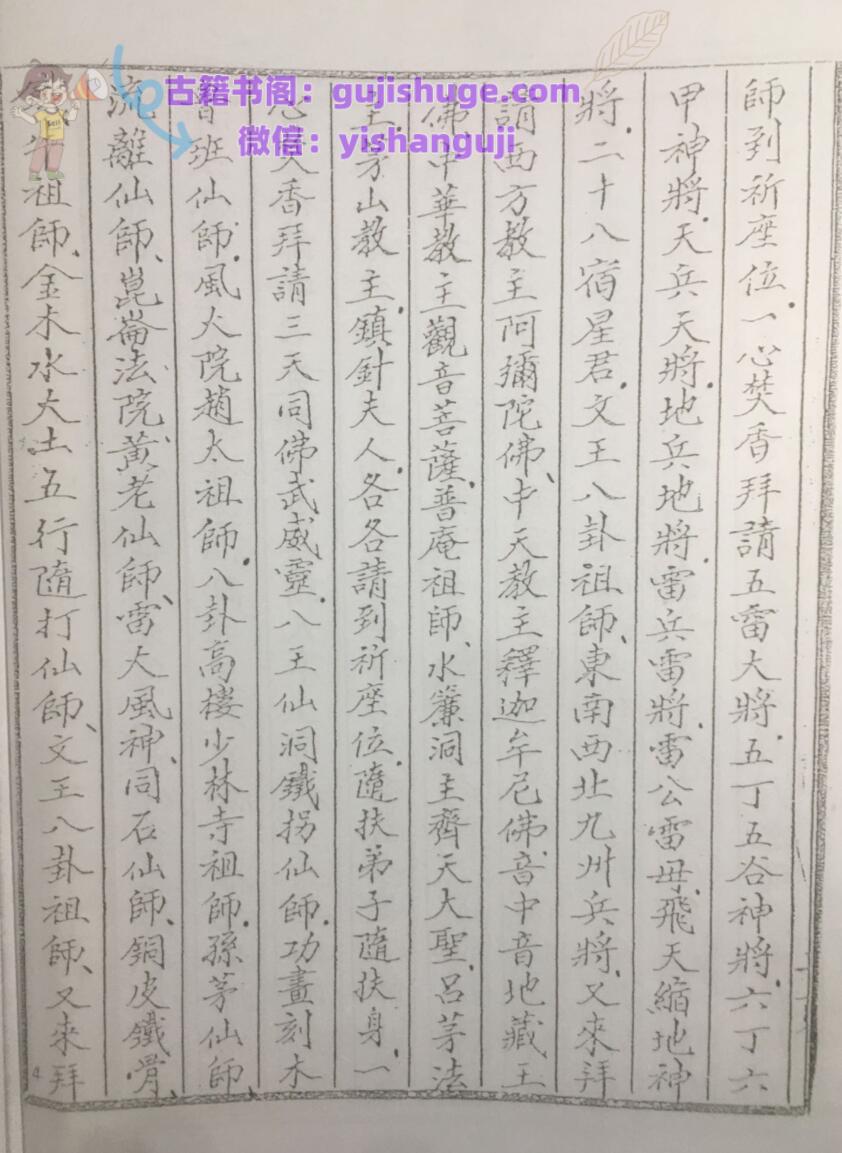 古籍书阁：gujishuge.com
微信：yishanguji
師到祈座位、一心焚香拜請五雷大將、五丁五谷神將、六丁六
甲神將、天兵天將、地兵地將、雷兵雷將、雷公雷母、飛天縮地神
將、二十八宿星君、文王八卦祖師、東南西北九州兵將、又來拜
請西方教主阿彌陀佛、中天教主釋迦牟尼佛、音中音地藏王
佛、中華教主觀音菩薩、普庵祖師、水簾洞主齊天大聖、呂茅法
主、茅山教主、鎮針夫人、各各請到祈座位、隨扶弟子隨扶身、一
心焚香拜請三天同佛武威靈、八王仙洞鐵拐仙師、功畫刻木
班仙師、風火院趙太祖師、八卦高樓少林寺祖師、孫茅仙師、
流離仙師、崑崙法院黃老仙師、雷火風神、同石仙師、銅皮鐵骨、
祖師、金木水火土五行隨打仙師、文王八卦祖師、又來拜
4